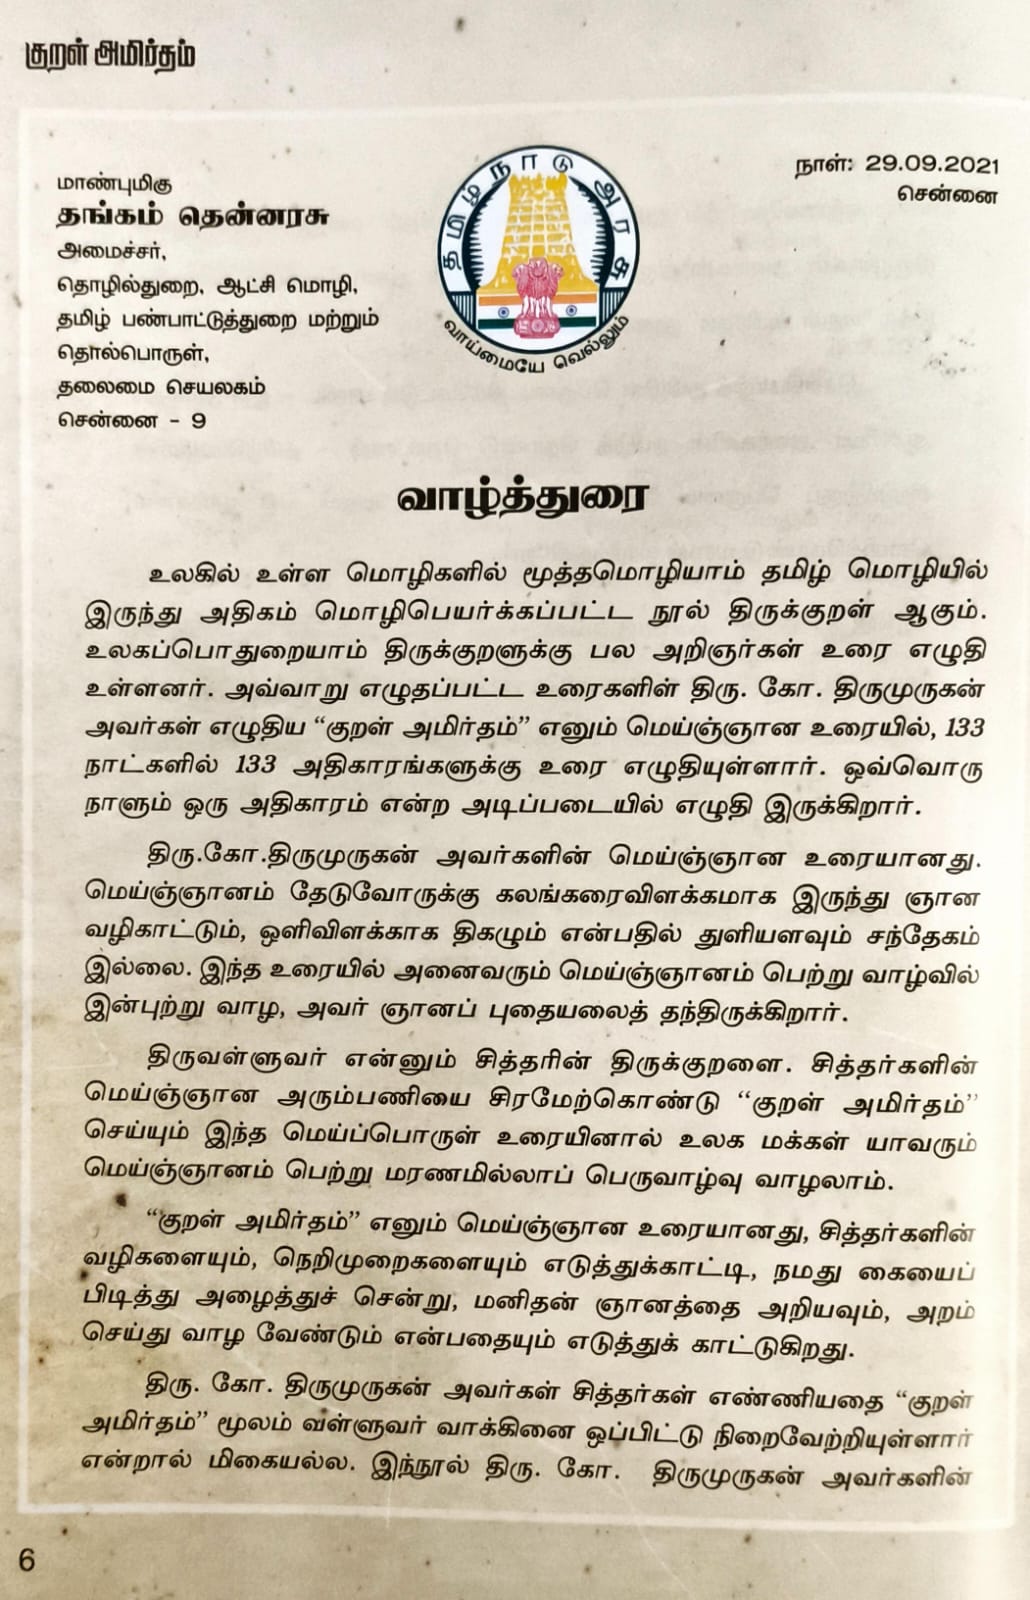 குறள் அமிர்தம்
நாள்: 29.09.2021
சென்னை
மாண்புமிகு
தங்கம் தென்னரசு
அமைச்சர்,
தொழில்துறை, ஆட்சி மொழி,
தமிழ் பண்பாட்டுத்துறை மற்றும்
தொல்பொருள்,
தலைமை செயலகம்
சென்னை - 9
தமிழ்நாடு அரசு
வாய்மையே வெல்லும்
வாழ்த்துரை
உலகில் உள்ள மொழிகளில் மூத்தமொழியாம் தமிழ் மொழியில்
இருந்து அதிகம் மொழிபெயர்க்கப்பட்ட நூல் திருக்குறள் ஆகும்.
உலகப்பொதுறையாம் திருக்குறளுக்கு பல அறிஞர்கள் உரை எழுதி
உள்ளனர். அவ்வாறு எழுதப்பட்ட உரைகளிள் திரு. கோ. திருமுருகன்
அவர்கள் எழுதிய “குறள் அமிர்தம்” எனும் மெய்ஞ்ஞான உரையில், 133
நாட்களில் 133 அதிகாரங்களுக்கு உரை எழுதியுள்ளார். ஒவ்வொரு
நாளும் ஒரு அதிகாரம் என்ற அடிப்படையில் எழுதி இருக்கிறார்.
திரு.கோ.திருமுருகன் அவர்களின் மெய்ஞ்ஞான உரையானது.
மெய்ஞ்ஞானம் தேடுவோருக்கு கலங்கரைவிளக்கமாக இருந்து ஞான
வழிகாட்டும், ஒளிவிளக்காக திகழும் என்பதில் துளியளவும் சந்தேகம்
இல்லை. இந்த உரையில் அனைவரும் மெய்ஞ்ஞானம் பெற்று வாழ்வில்
இன்புற்று வாழ, அவர் ஞானப் புதையலைத் தந்திருக்கிறார்.
திருவள்ளுவர் என்னும் சித்தரின் திருக்குறளை. சித்தர்களின்
மெய்ஞ்ஞான அரும்பணியை சிரமேற்கொண்டு “குறள் அமிர்தம்”
செய்யும் இந்த மெய்ப்பொருள் உரையினால் உலக மக்கள் யாவரும்
மெய்ஞ்ஞானம் பெற்று மரணமில்லாப் பெருவாழ்வு வாழலாம்.
“குறள் அமிர்தம்” எனும் மெய்ஞ்ஞான உரையானது, சித்தர்களின்
வழிகளையும், நெறிமுறைகளையும் எடுத்துக்காட்டி, நமது கையைப்
பிடித்து அழைத்துச் சென்று, மனிதன் ஞானத்தை அறியவும், அறம்
செய்து வாழ வேண்டும் என்பதையும் எடுத்துக் காட்டுகிறது.
திரு. கோ. திருமுருகன் அவர்கள் சித்தர்கள் எண்ணியதை “குறள்
அமிர்தம்” மூலம் வள்ளுவர் வாக்கினை ஒப்பிட்டு நிறைவேற்றியுள்ளார்
என்றால் மிகையல்ல. இந்நூல் திரு. கோ. திருமுருகன் அவர்களின்
6